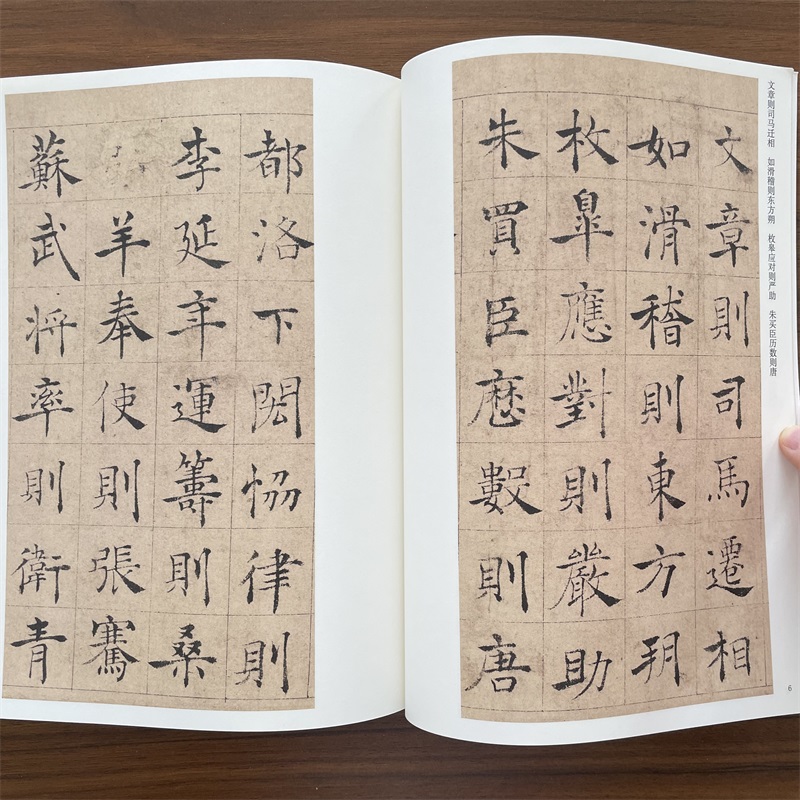 文章则司马迁相 如滑稽则东方朔 枚皋应对则严助 朱买臣历数则唐
文章則司馬遷相
如滑稽則東方朔
枚皐應對則嚴助
朱買臣歷數則唐
6
都洛下閎恊律則
李延年運籌則桑
羊奉使則張騫
蘇武將率則衛青